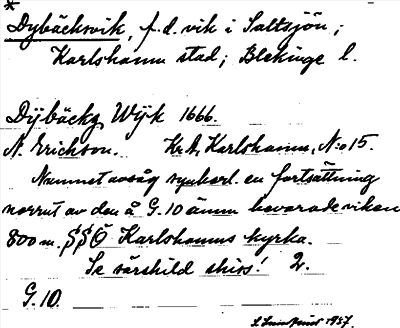 *
Dybäcksvik, f.d. vik i Saltsjön;
Karlshamn stad; Blekinge l.
Dÿbäckz Wÿk 1666.
N. Erichson. Kr.A. Karlshamn, N:o 15.
Namnet avsåg synberl. en fortsättning
norrut av den å G.10 ännu bevarade viken
800 m. SSÖ Karlshamns kyrka.
Se särskild skiss! 2.
G.10.
1957.